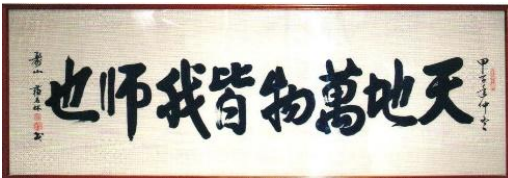 甲子年仲冬
天地萬物皆我师也